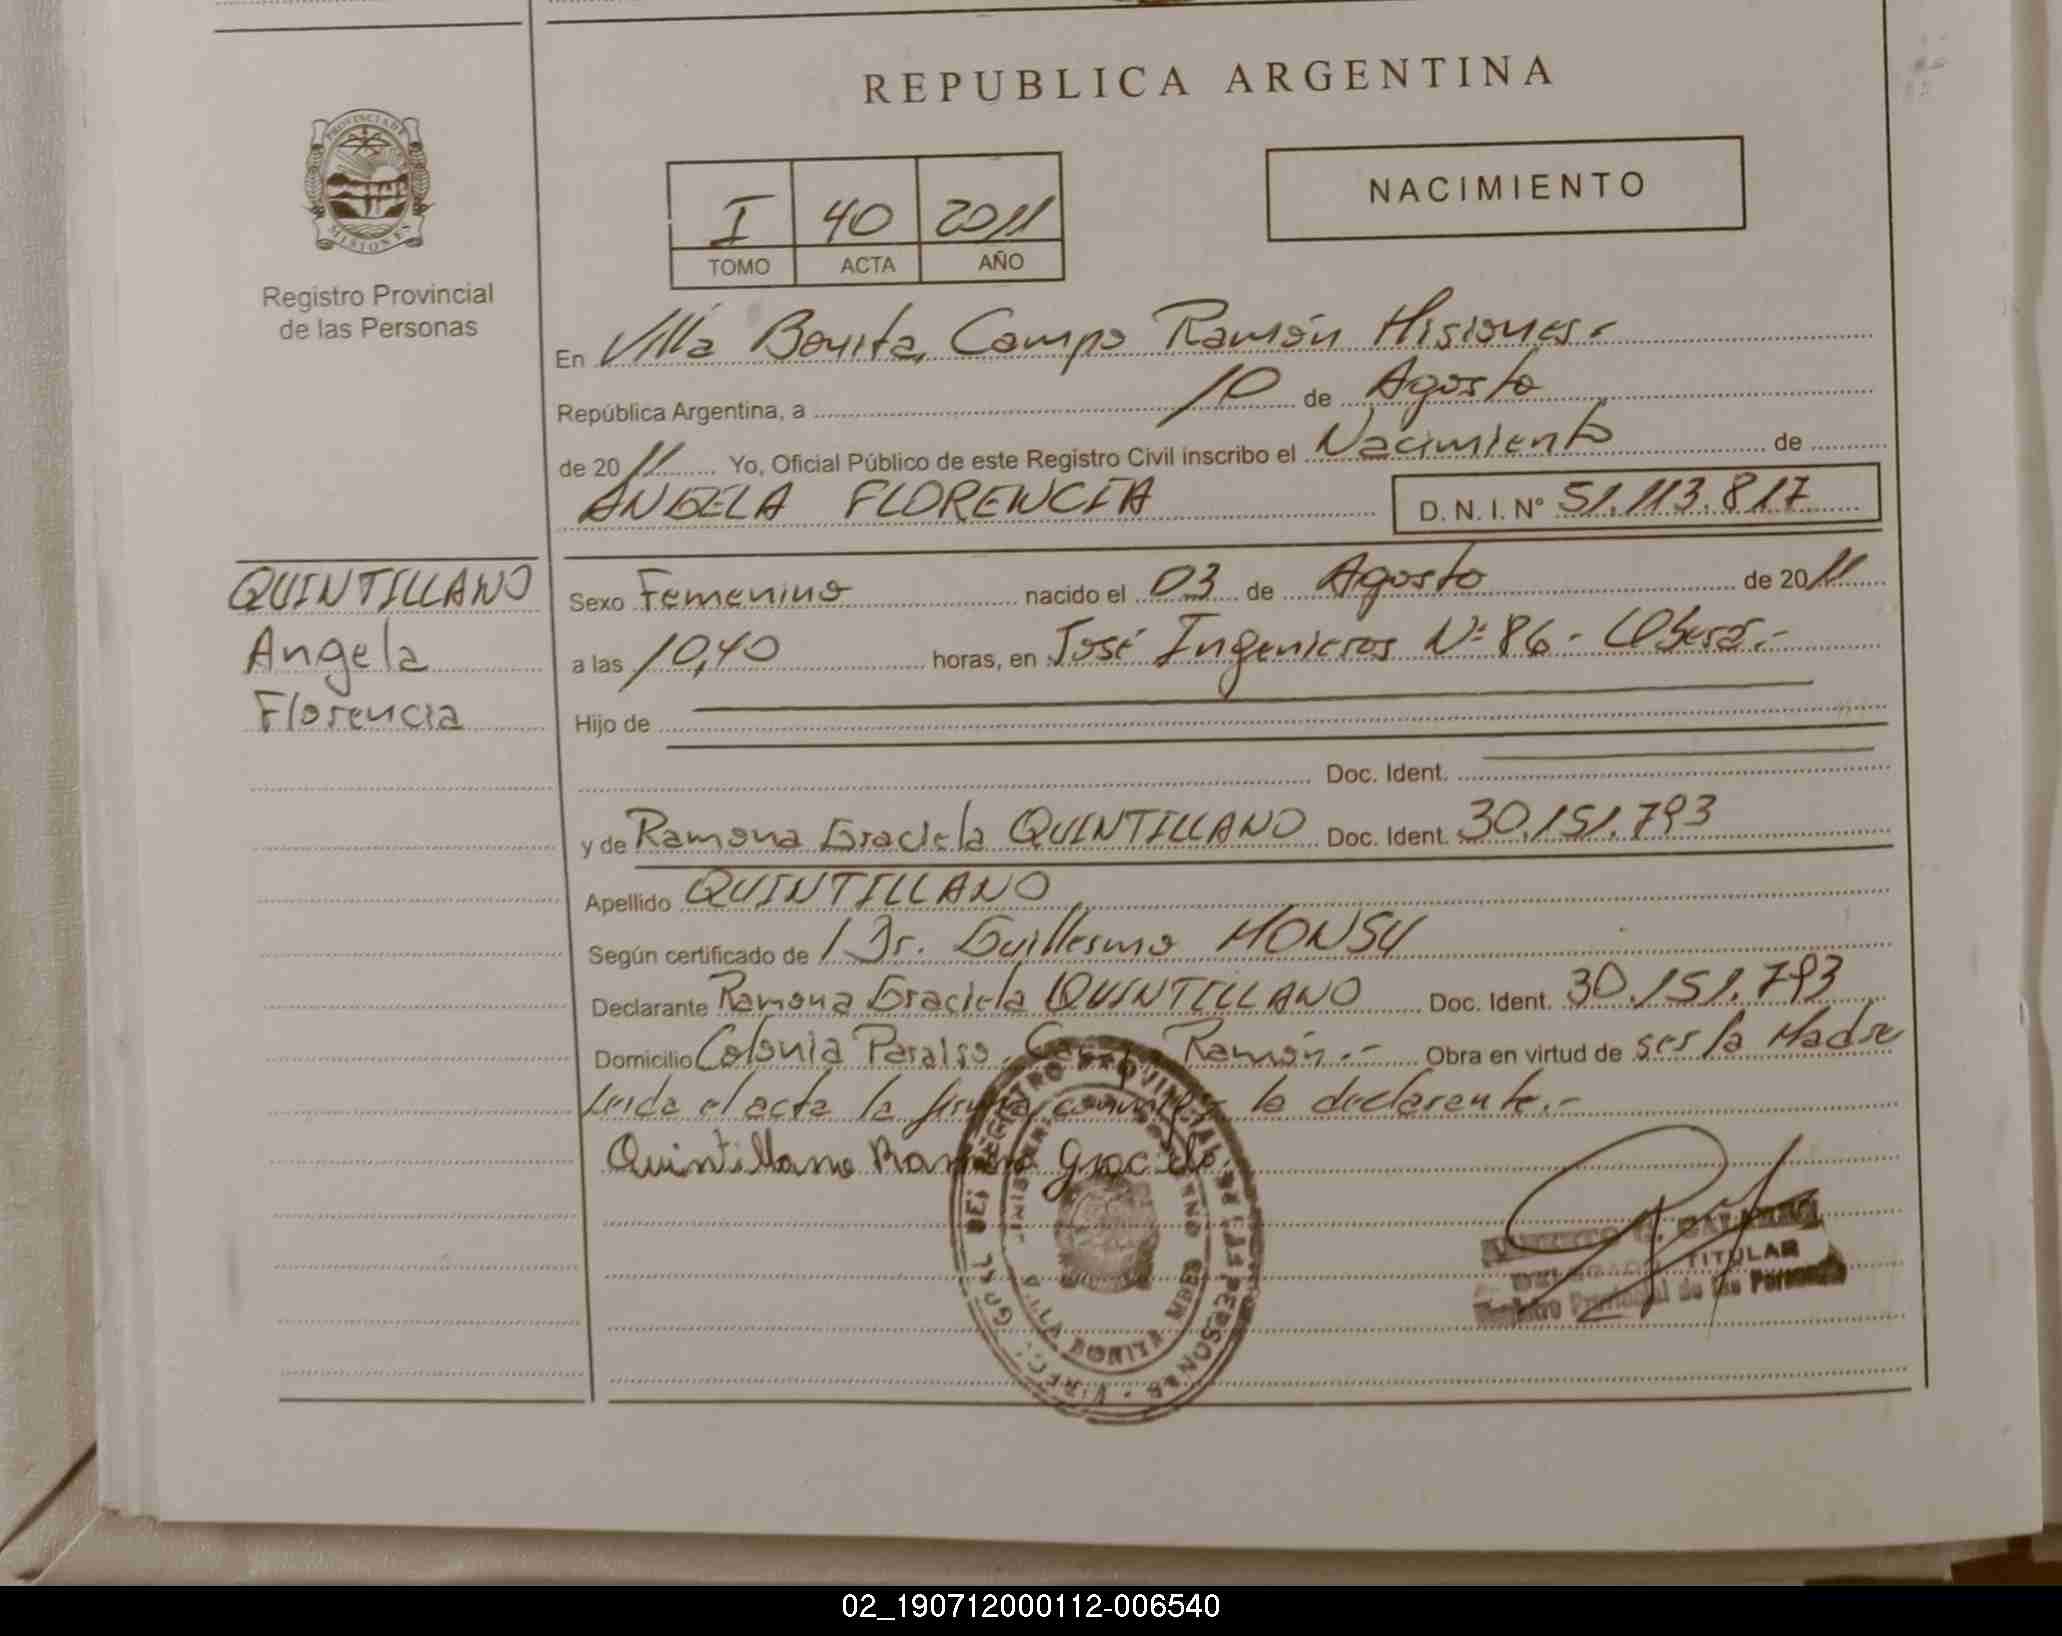 REPUBLICA ARGENTINA
NACIMIENTO
PROVINCIA DE
MISIONES
Registro Provincial
de las Personas
I 40 2011
TOMO ACTA AÑO
En Villa Bonita, Campo Ramón Misiones.-
República Argentina, a 10 de Agosto
de 2011 Yo, Oficial Público de este Registro Civil inscribo el Nacimiento de
ANGELA FLORENCIA D. N. I. N° 51.113.817
QUINTILLANO
Angela
Florencia
Sexo Femenino nacido el 03 de Agosto de 2011
a las 10,40 horas, en José Ingenieros N° 86 - Oberá.-
Hijo de
Doc. Ident.
y de Ramona Graciela QUINTILLANO Doc. Ident. 30.151.793
Apellido QUINTILLANO
Según certificado de / Dr. Guillermo MONSU
Declarante Ramona Graciela QUINTILLANO Doc. Ident. 30.151.793
Domicilio Colonia Paraiso. Campo Ramón.- Obra en virtud de ser la Madre
Leida el acta la firma conmigo la declarante.-
Quintillano Ramona Graciela
REGISTRO PROVINCIAL DE LAS PERSONAS
VILLA BONITA
TITULAR
Registro Provincial de las Personas
02_190712000112-006540